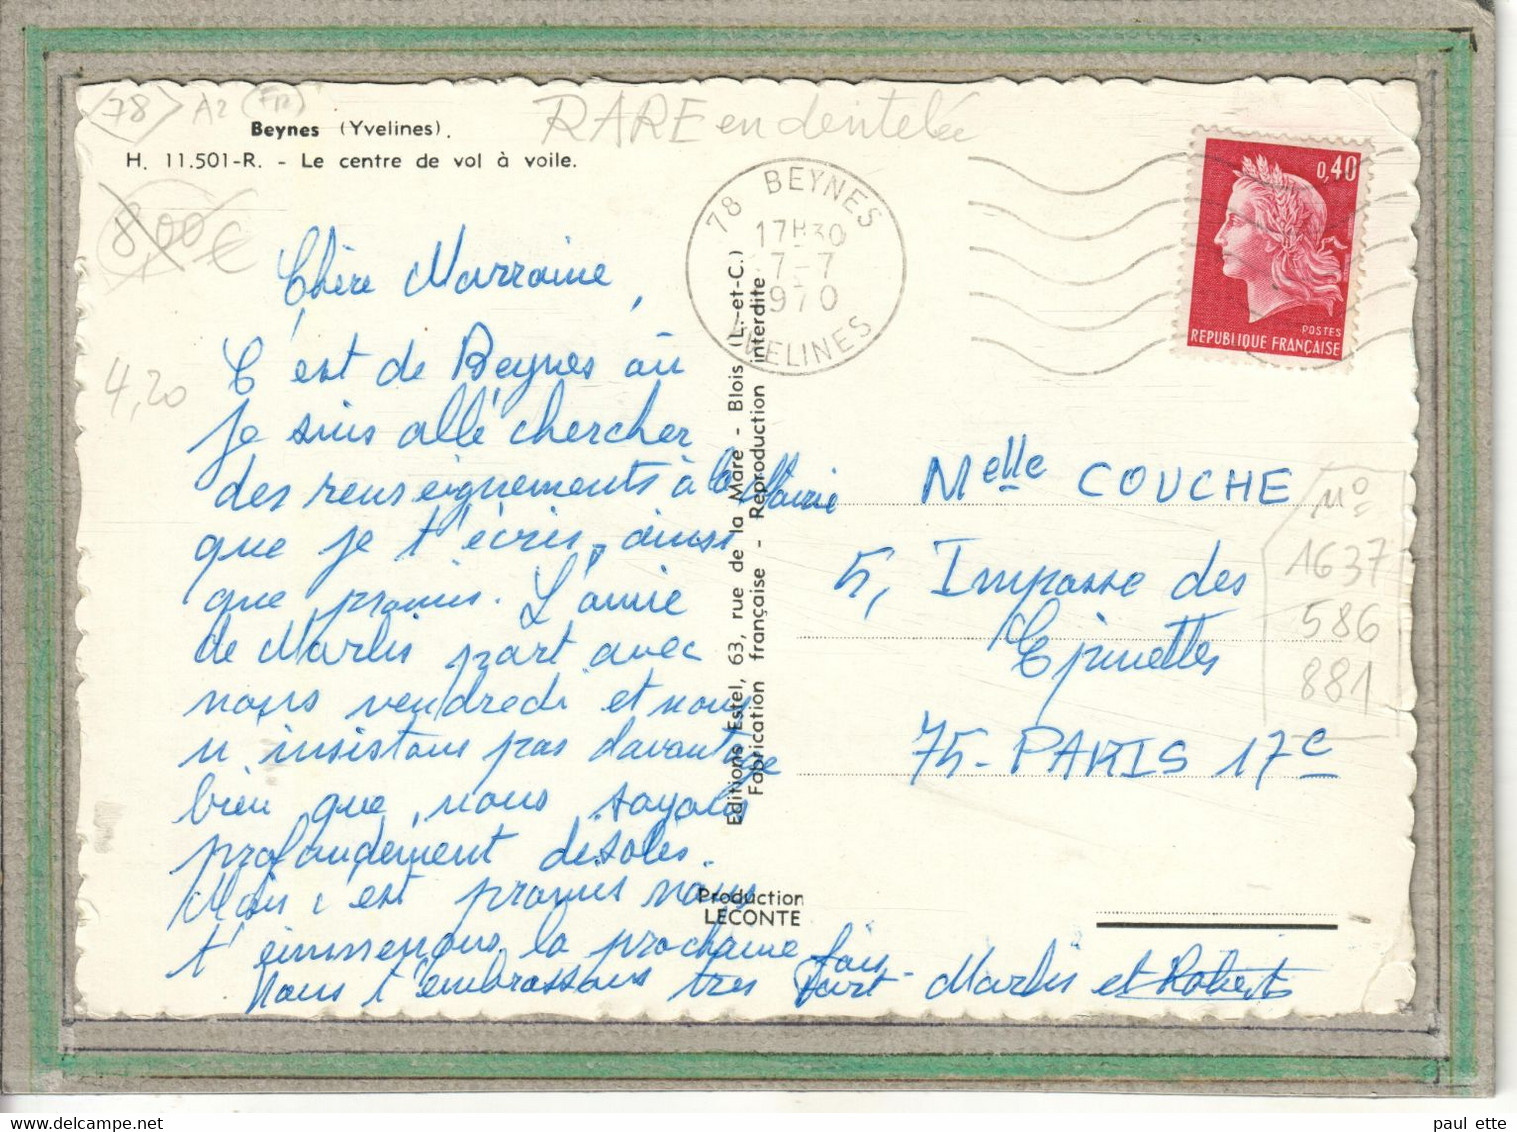 78 A2 (FR)
RARE en dentelée
Beynes (Yvelines).
H. 11.501-R. - Le centre de vol à voile.
8,00 €
4,20
78 BEYNES
17H30
7-7
1970
YVELINES
0,40
POSTES
REPUBLIQUE FRANÇAISE
Chère Marraine,
C'est de Beynes où
je suis allé chercher
des renseignements à la Mairie
que je t'écris, ainsi
que promis. L'amie
de Marlis part avec
nous vendredi et nous
n'insistons pas davantage
bien que nous soyons
profondément désolés.
Mais c'est promis nous
t'emmenons la prochaine fois.
Nous t'embrassons très fort - Marlis et Robert
Editions Estel, 63, rue de la Mare - Blois (L.-et-C.)
Fabrication française - Reproduction interdite
Production
LECONTE
Melle COUCHE
5, Impasse des
Epinettes
75-PARIS 17e
No
1637
586
881
paul ette